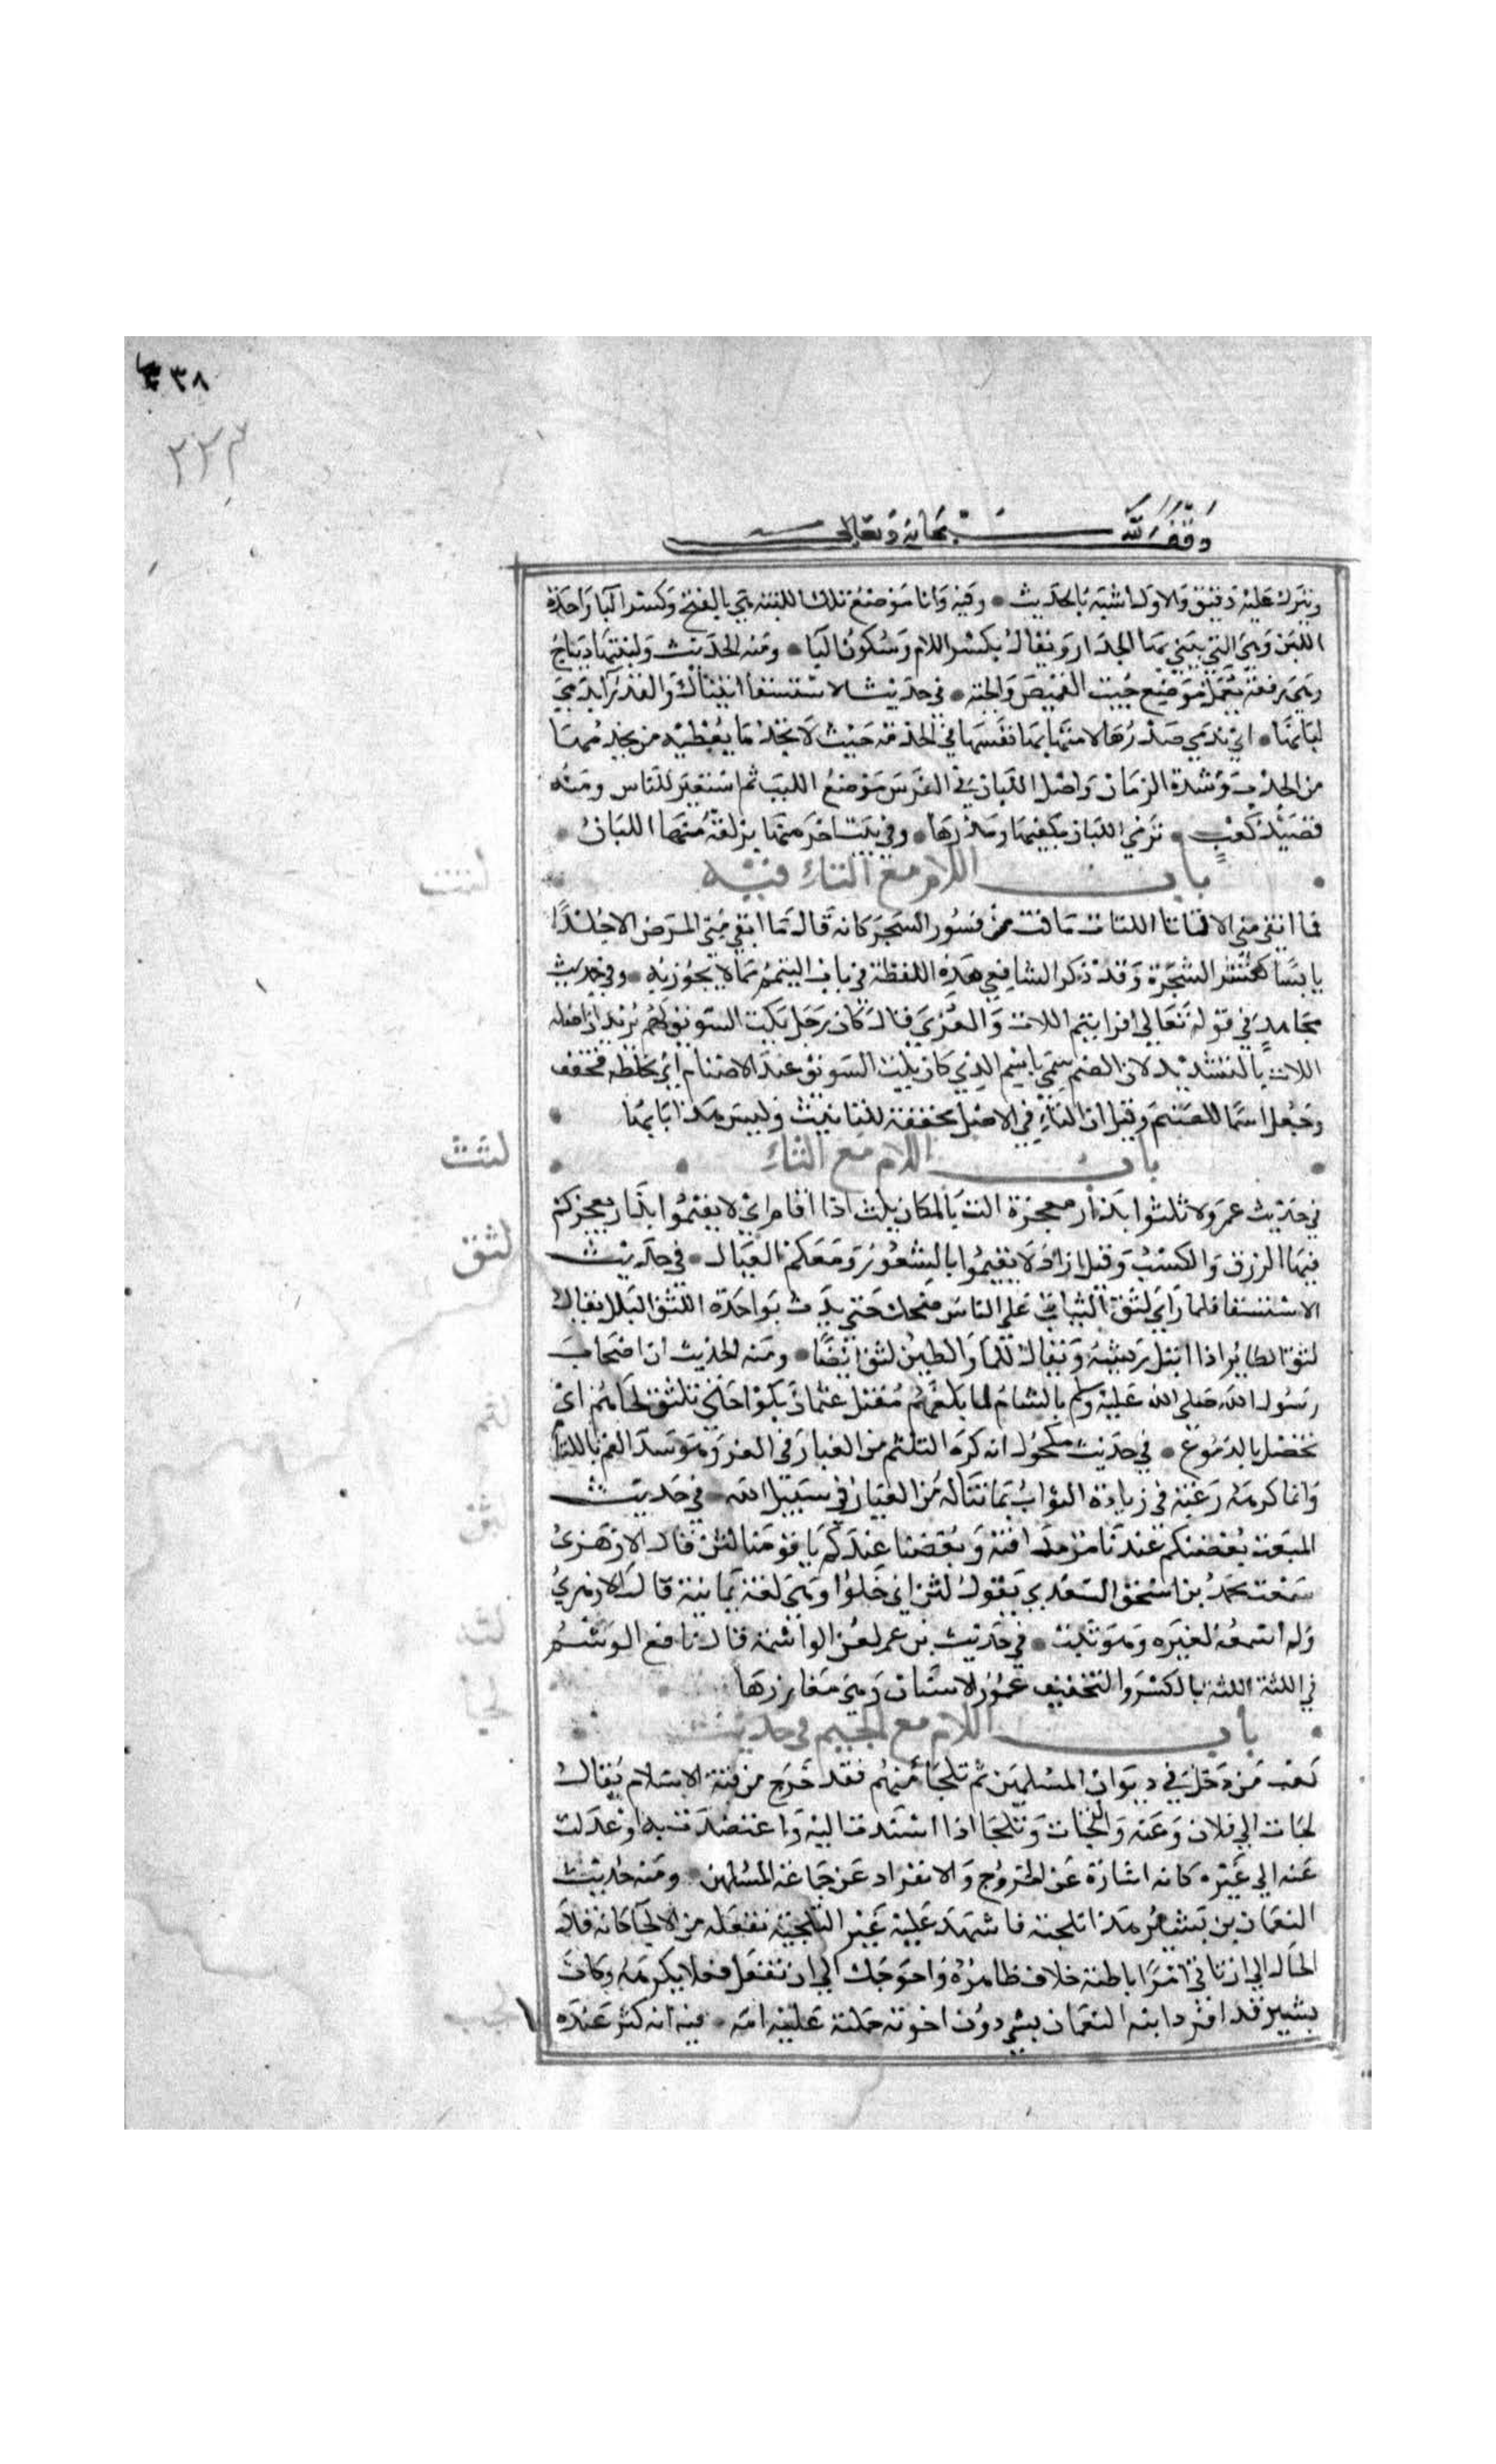 ٣٨
٢٢٣
وقف لله سبحانه وتعالى
ويترك عليه دقيق والاول اشبه بالحديث • وفيه وانا موضع تلك اللبنة هي بالفتح وكسر البا واحدة
اللبن وهي التي يبني بها الجدار ويقال بكسر اللام وسكون البا • ومنه الحديث ولبنتها ديباج
وهي رقعة تعمل موضع جيب القميص والجبة • في حديث الاستسقا اتيناك والعذرا يدمي
لبانها • اي يدمي صدرها لامتهانها نفسها في الخدمة حيث لا تجد ما يعطيه من يخدمها
من الجدب وشدة الزمان واصل اللبان في الفرس موضع اللبب ثم استعير للناس ومنه
قصيد كعب • ترمي اللبان بكفيها ومدرعها • وفي بيت اخر منها يزلقه منها اللبان •
باب اللام مع التاء فيه
لتت
فما ابقى مني الا لتاتا اللتات ما فت من قشور الشجر كانه قال ما ابقي مني المرض الا جلدا
يابسا كقشر الشجرة وقد ذكر الشافعي هذه اللفظة في باب التيمم مما لا يجوز به • وفي حديث
مجاهد في قوله تعالي افرايتم اللات والعزي قال كان رجل يلت السويق لهم يريد ان اصله
اللات بالتشديد لان الصنم سمي باسم الذي كان يلت السويق عند الاصنام اي يخلطه فخفف
وجعل اسما للصنم وقيل ان التاء في الاصل مخففة للتانيث وليس هذا بابها •
باب اللام مع الثاء
لثث
في حديث عمر ولا تلثوا بدار معجزة الث بالمكان يلث اذا اقام اي لا تقيموا بدار يعجزكم
لثق
فيها الرزق والكسب وقيل اراد لا تقيموا بالثغور ومعكم العيال • في حديث
الاستسقا فلما راي لثق الثياب علي الناس ضحك حتي بدت نواجذه اللثق البلل يقال
لثق الطاير اذا ابتل ريشه ويقال للما والطين لثق ايضا • ومنه الحديث ان اصحاب
رسول الله صلي الله عليه وسلم بالشام لما بلغهم مقتل عثمان بكوا حتي تلثق لحاهم اي
لثم
تخضل بالدموع • في حديث مكحول انه كره التلثم من الغبار في الغزو وهو سد الفم باللثام
وانما كرهه رغبة في زيادة الثواب بما يناله من الغبار في سبيل الله • في حديث
لثن
المبعث بعضكم عندنا مر مذاقته وبعضنا عندكم يا قومنا لثن قال الازهري
سمعت محمد بن اسحق السعدي يقول لثن اي حلوا وهي لغة يمانية قال الازهري
لثه
ولم اسمعه لغيره وهو ثبت • في حديث بن عمر لعن الواشمة قال نافع الوشم
في اللثة اللثة بالكسر والتخفيف عمور الاسنان وهي مغارزها
لجا
باب اللام مع الجيم في حديث
كعب من دخل في ديوان المسلمين ثم تلجا منهم فقد خرج من قبة الاسلام يقال
لجات الي فلان وعنه والتجات وتلجا اذا استندت اليه واعتضدت به او عدلت
عنه الي غيره كانه اشارة عن الخروج والانفراد عن جماعة المسلمين • ومنه حديث
النعمان بن بشير هذا تلجئة فاشهد عليه غيري التلجئة تفعلة من الالجا كانه قد
الجاك الي ان تاتي امرا باطنه خلاف ظاهره واحوجك الي ان تفعل فعلا تكرهه وكان
بشير قد افرد ابنه النعمان بشي دون اخوته حملته عليه امه • فيه انه كثر عنده
لجب